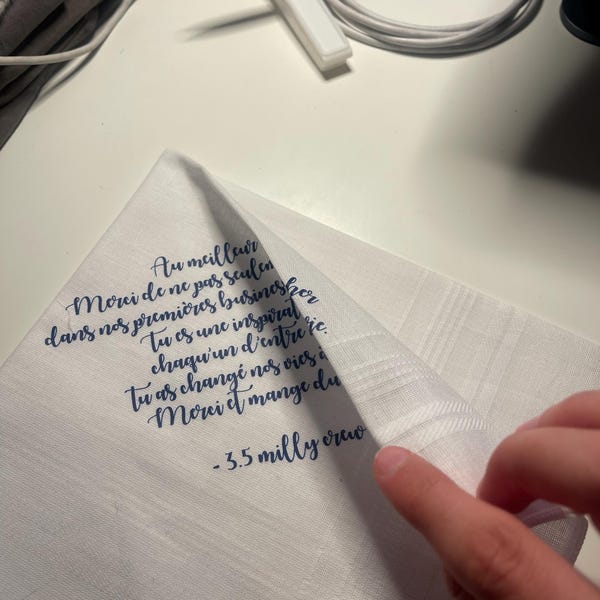 Au meilleur
Merci de ne pas seulem
dans nos premières business her
Tu es une inspirat
chaqu'un d'entre ie.
Tu as changé nos vies à
Merci et mange du
- 3.5 milly crew